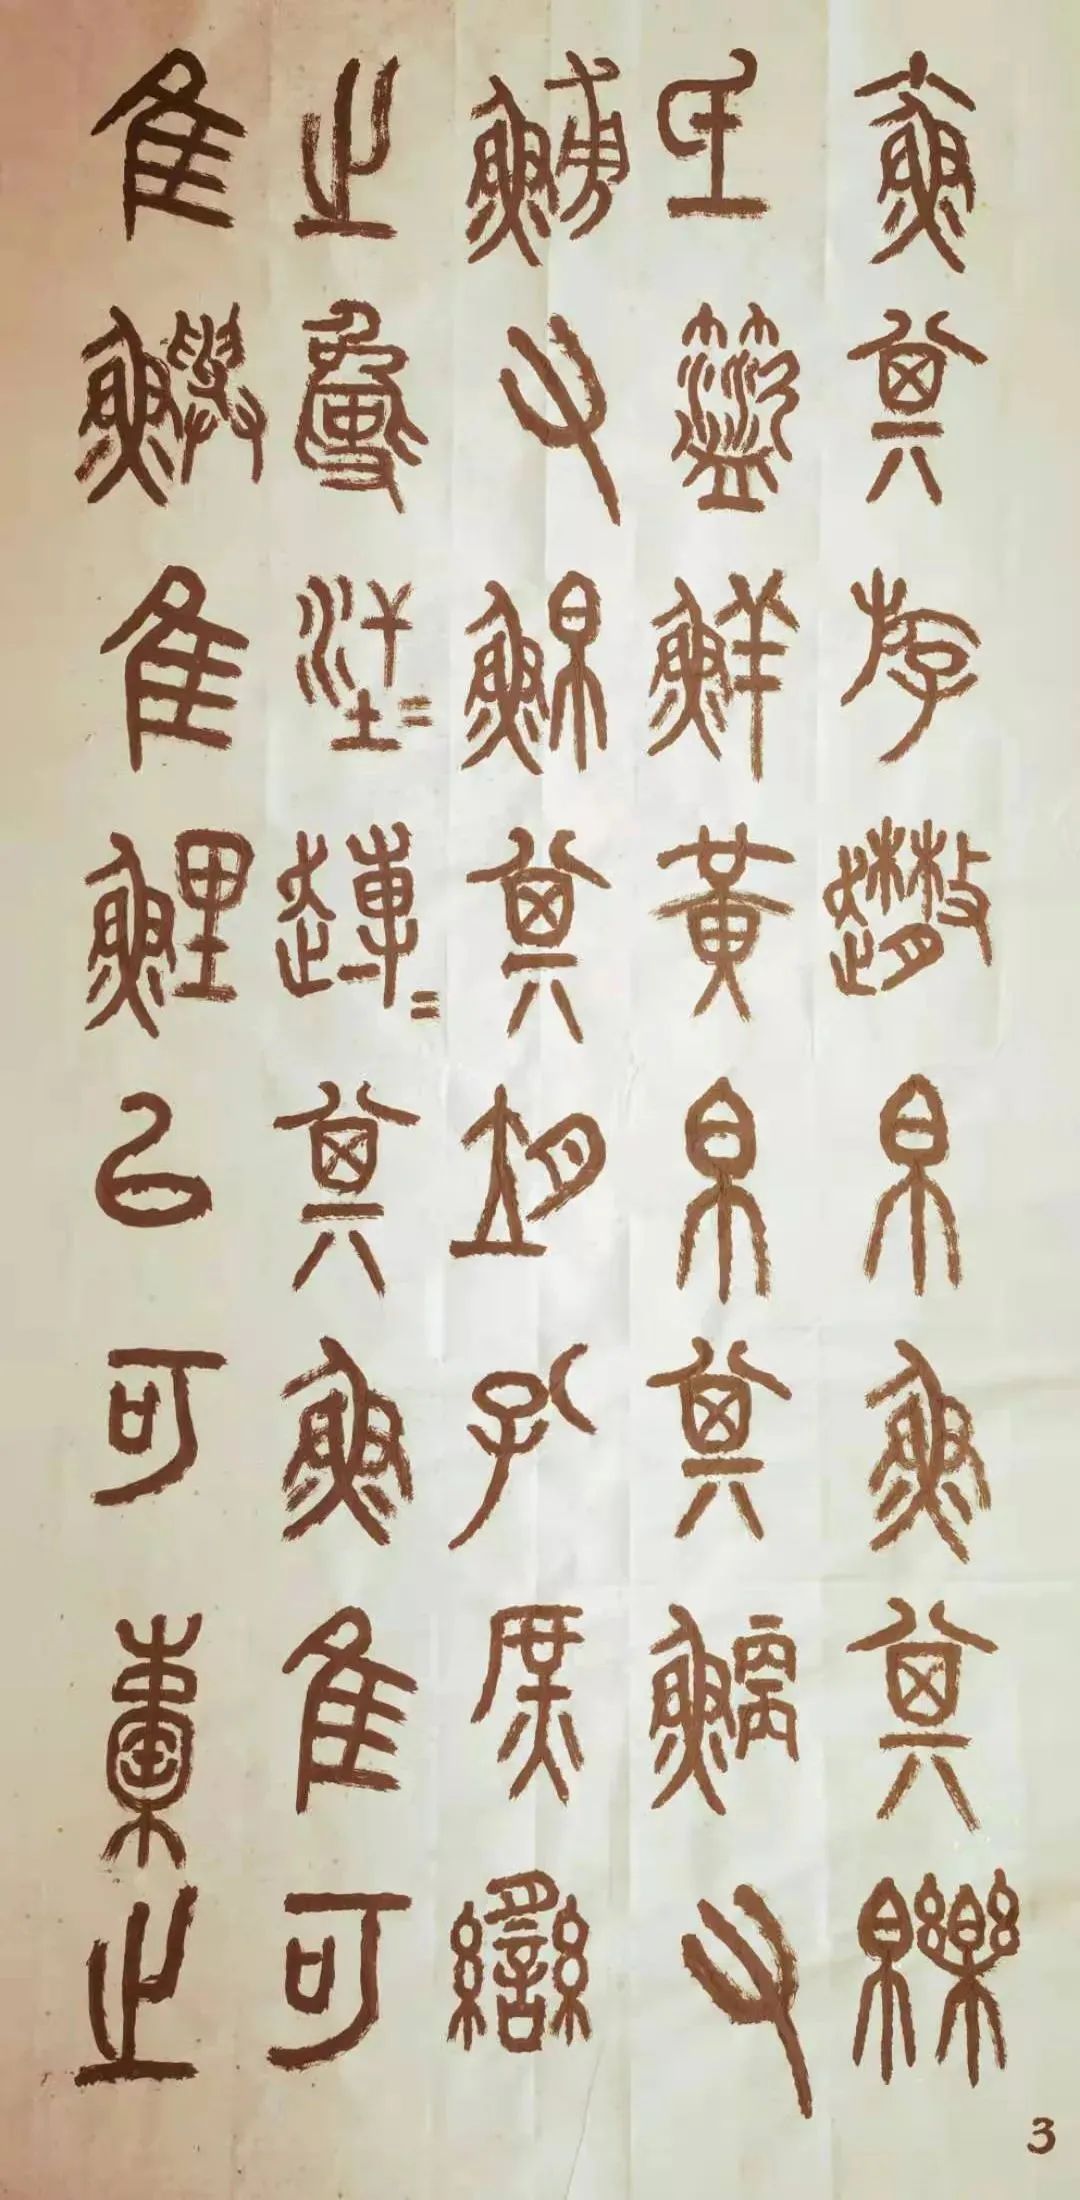 小魚其斿趣帛魚其皪
氐籃鮮黃帛其鯿又
鱄又鮊其孔庶臠
之其魚隹可
隹鱮隹鯉㠯可橐之
3